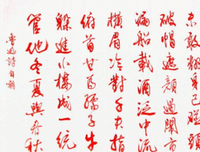 未敢翻身已碰頭
破帽遮顏過鬧市
漏船載酒泛中流
橫眉冷對千夫指
俯首甘為孺子牛
躲進小樓成一統
管他冬夏與春秋
魯迅詩自嘲